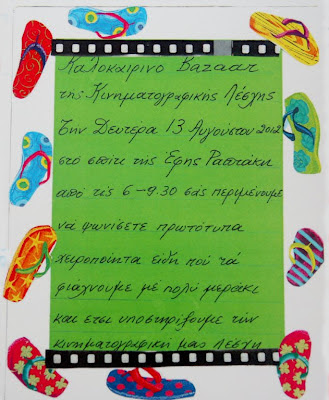 Καλοκαιρινο Bazaar
της Κινηματογραφικής Λέσχης
Την Δευτέρα 13 Αυγούστου 2012
στό σπίτι της Έφης Ρασπάκη
από τίς 6-9.30 σάς περιμένουμε
νά ψωνίσετε πρωτότυπα
χειροποίητα είδη πού τά
φιάχνουμε μέ πολύ μεράκι
και έτσι υποστηρίζουμε τήν
κινηματογραφική μας λέσχη